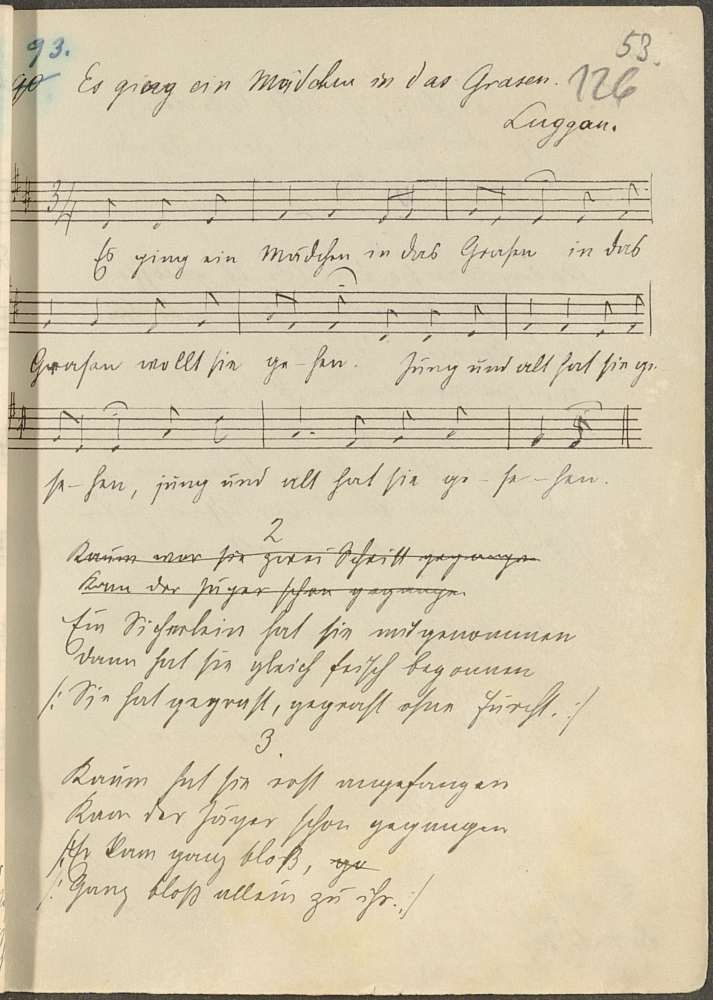 93.
53.
90 Es ging ein Mädchen in das Grasen.
126
Luggau.
3/4
Es ging ein Mädchen in das Grasen in das
Grasen wollt sie ge-hen. Jung und alt hat sie ge-
se-hen, jung und alt hat sie ge-se-hen.
2
Kaum war sie zwei Schritt gegangen
Kam der Jäger schon gegangen.
Ein Sicherlein hat sie mitgenommen
Dann hat sie gleich frisch begonnen
/: Sie hat gegrast, gegrast ohne Furcht. :/
3.
Kaum hat sie erst angefangen
Kam der Jäger schon gegangen
/: Er kam ganz bloß, ga
/: Ganz bloß allein zu ihr. :/